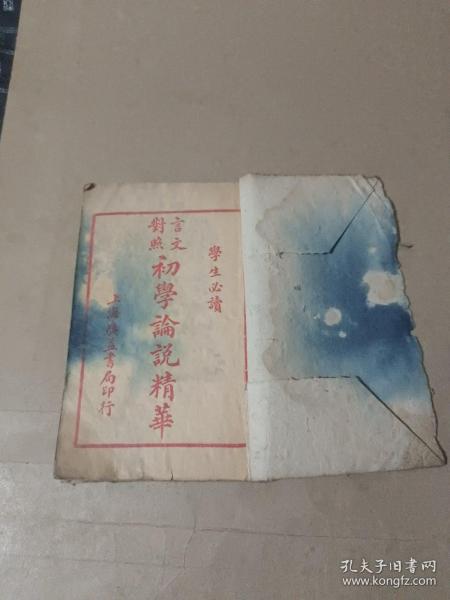 學生必讀
言文
對照
初學論說精華
上海廣益書局印行
孔夫子旧书网
www.kongfz.com